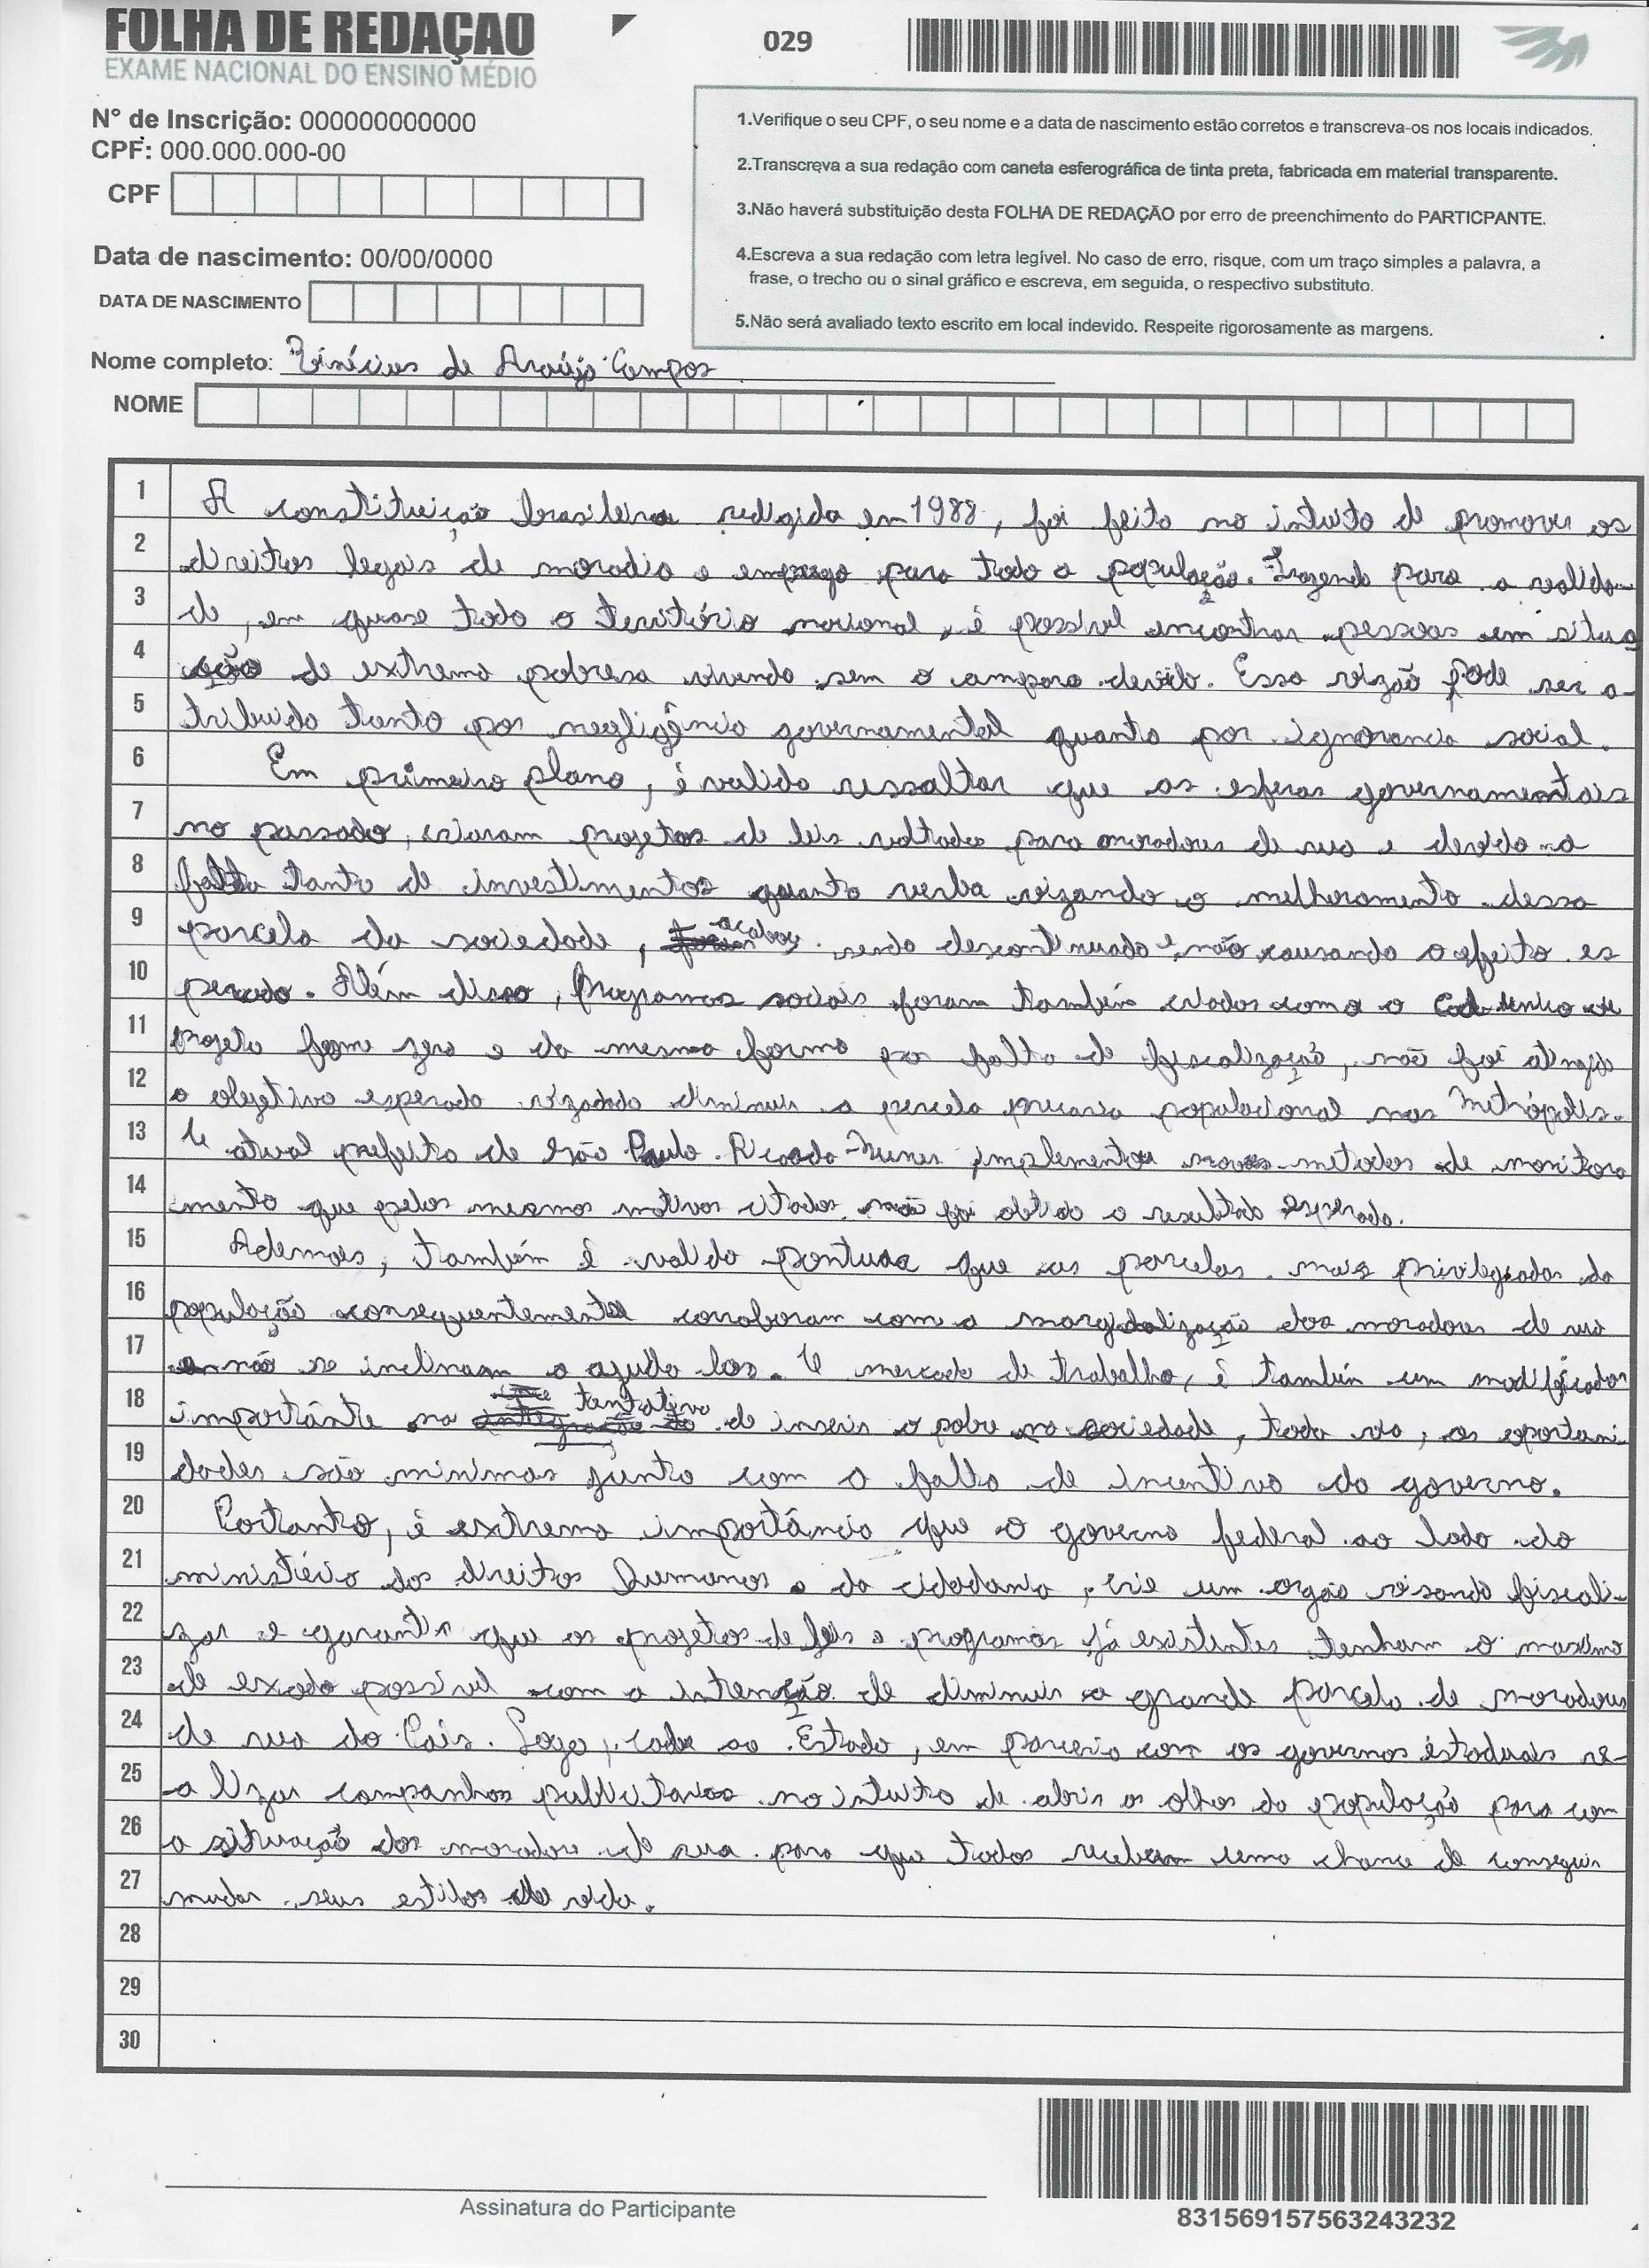 FOLHA DE REDAÇAO
EXAME NACIONAL DO ENSINO MÉDIO
029
N° de Inscrição: 000000000000
CPF: 000.000.000-00
CPF
Data de nascimento: 00/00/0000
DATA DE NASCIMENTO
1.Verifique o seu CPF, o seu nome e a data de nascimento estão corretos e transcreva-os nos locais indicados.
2.Transcreva a sua redação com caneta esferográfica de tinta preta, fabricada em material transparente.
3.Não haverá substituição desta FOLHA DE REDAÇÃO por erro de preenchimento do PARTICPANTE.
4.Escreva a sua redação com letra legível. No caso de erro, risque, com um traço simples a palavra, a
frase, o trecho ou o sinal gráfico e escreva, em seguida, o respectivo substituto.
5.Não será avaliado texto escrito em local indevido. Respeite rigorosamente as margens.
Nome completo: Vinícius de Araújo Campos
NOME
1 A constituição brasileira redigida em 1988, foi feito no intuito de promover os
2 direitos legais de moradia e emprego para toda a população. Trazendo para a realida-
3 de, em quase todo o território nacional, é possível encontrar pessoas em situa
4 ção de extrema pobresa vivendo sem o amparo devido. Essa vizão pode ser a-
5 tribuida tanto por negligência governamental quanto por ignorancia social.
6 Em primeiro plano, é valido ressaltar que as esferas governamentais
7 no passado, criaram projetos de leis voltados para moradores de rua e devido a
8 falta tanto de investimentos quanto verba vizando o melhoramento dessa
9 parcela da sociedade, acabou sendo descontinuado e não causando o efeito es
10 perado. Além disso, Programas sociais foram também criados como o
11 projeto fome zero e da mesma forma por falta de fiscalização, não foi atingido
12 o objetivo esperado vizando diminuir a parcela precaria populacional nas Metrópolis.
13 O atual prefeito de São Paulo Ricardo Nunes implementou novos metodos de monitora
14 mento que pelos mesmos motivos citados não foi obtido o resultado esperado.
15 Ademais, também é valido pontuar que as parcelas mais privilegiadas da
16 população consequentemente corroboram com a marginalização dos moradores de rua
17 e não se inclinam a ajuda los. O mercado de trabalho, é também um modificador
18 importânte na tentativa de inserir o pobre na sociedade, toda via, as oportuni-
19 dades são minimas junto com a falta de incentivo do governo.
20 Portanto, é extrema importância que o governo federal ao lado do
21 ministério dos direitos humanos e da cidadania, crie um orgão visando fiscali-
22 zar e garantir que os projetos de leis e programas já existentes tenham o maximo
23 de exodo possível com a intenção de diminuir a grande parcela de moradores
24 de rua do Pais. Logo, cabe ao Estado, em parceria com os governos estaduais re-
25 alizar campanhas publicitarias no intuito de abrir os olhos da população para com
26 a situação dos moradores de rua para que todos recebam uma chance de conseguir
27 mudar seus estilos de vida.
28
29
30
Assinatura do Participante
831569157563243232